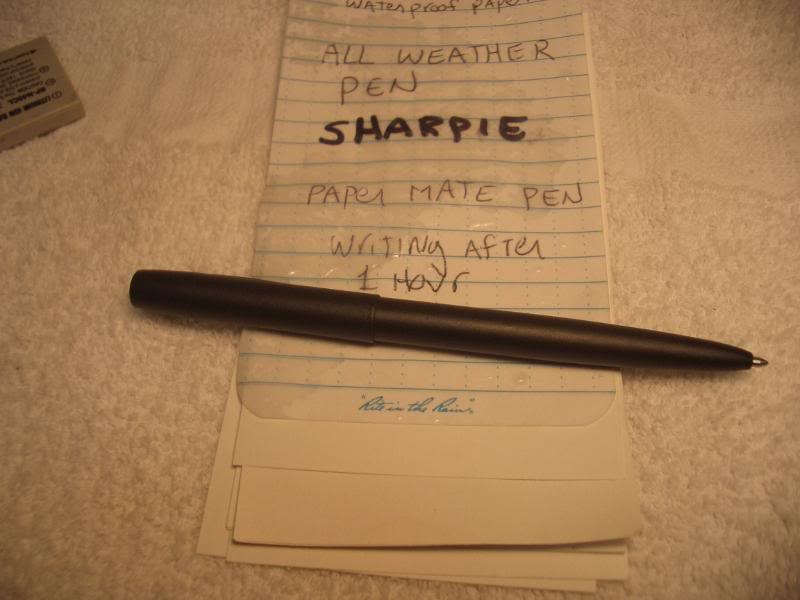 Waterproof paper
ALL WEATHER
PEN
SHARPIE
PAPer MATE PEN
Writing After
1 Hour
"Rite in the Rain".